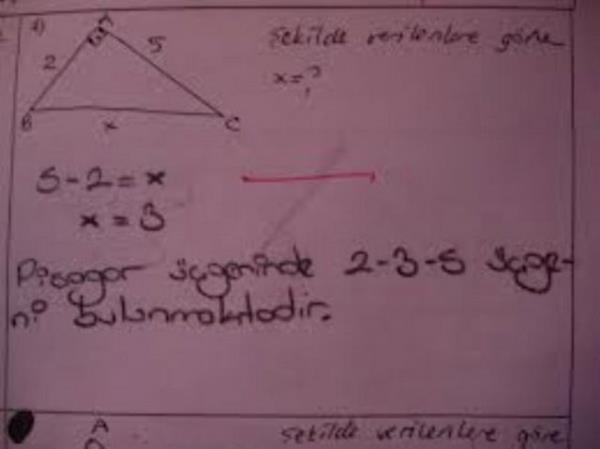 A
2
5
Şekilde verilenlere göre
x=?
B
x
C
5-2=x
x=3
Pisagor üçgeninde 2-3-5 üçge-
ni bulunmaktadır.
A
Şekilde verilenlere göre